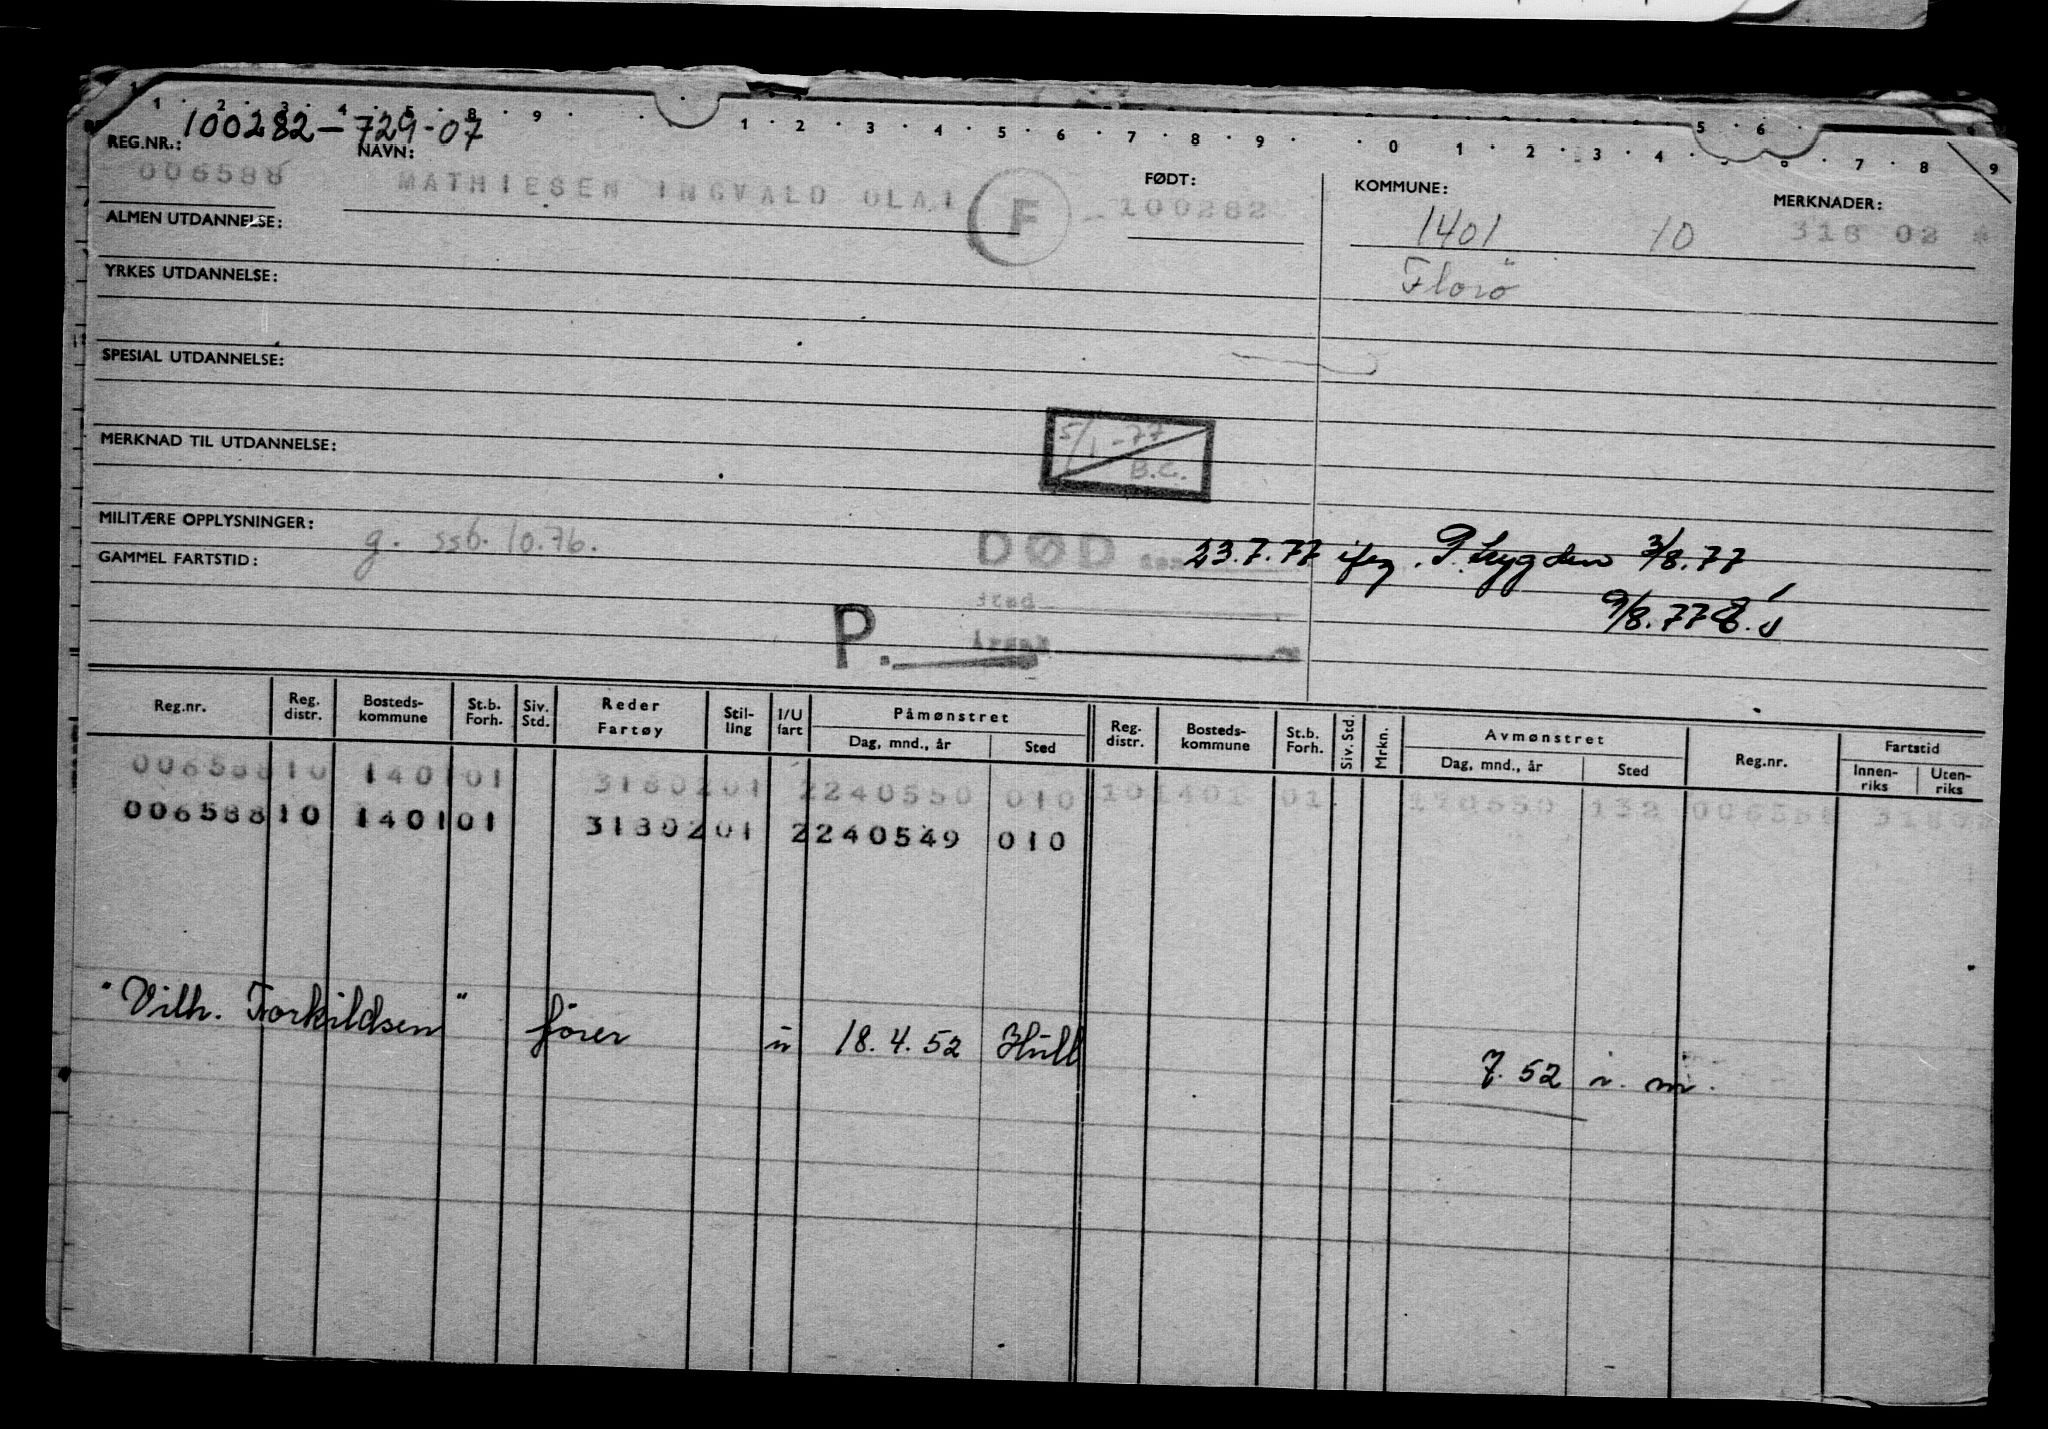 1 · 2 · 3 · 4 · 5 · 8 · 9 · 1 · 2 · 3 · 4 · 5 · 6 · 7 · 8 · 9 · · 0 · 1 · 2 · 3 · 4 · 5 · 6 · 7 · 8 · 9
REG.NR.: 100282-729-07 NAVN: FØDT: KOMMUNE: MERKNADER:
006588 MATHIESEN INGVALD OLAI F -100282 1401 10 318 02 *
ALMEN UTDANNELSE:
Florö
YRKES UTDANNELSE:
SPESIAL UTDANNELSE:
5/1-77
B.C.
MERKNAD TIL UTDANNELSE:
MILITÆRE OPPLYSNINGER: g. ssb. 10.76.
DØD den 23.7.77 iføg. P. trygden 3/8.77
GAMMEL FARTSTID:
Sted
9/8.77
P. Årsak
Reg.nr. Reg. distr. Bosteds-kommune St.b. Forh. Siv. Std. Reder Fartøy Stil-ling I/U fart Påmønstret Dag, mnd., år Sted Reg. distr. Bosteds-kommune St.b. Forh. Siv. Std. Mrkn. Avmønstret Dag, mnd., år Sted Reg.nr. Fartstid Innen-riks Uten-riks
006588 10 1401 01 31802 01 2 240550 010 10 1401 01 170550 132 006588 31802
006588 10 1401 01 31802 01 2 240549 010
"Vilh. Torkildsen" fører u 18.4.52 Hull 7.52 i. m.